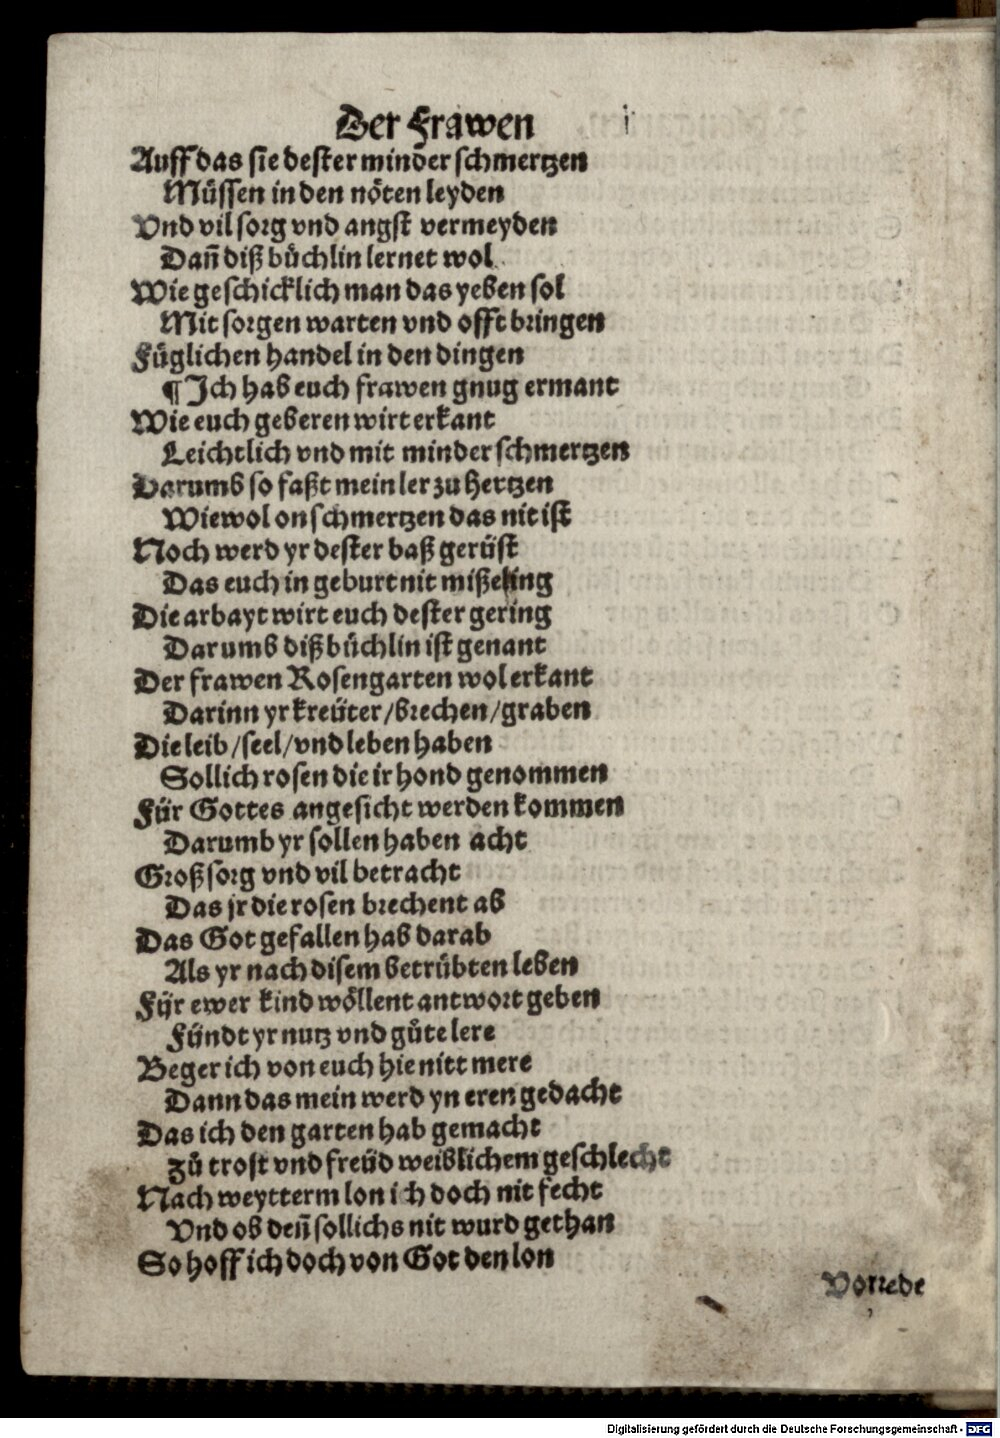 Der Frawen
Auff das sie dester minder schmertzen
Müssen in den nöten leyden
Vnd vil sorg vnd angst vermeyden
Dañ diß büchlin lernet wol
Wie geschicklich man das yeben sol
Mit sorgen warten vnd offt bringen
Füglichen handel in den dingen
¶ Ich hab euch frawen gnug ermant
Wie euch geberen wirt erkant
Leichtlich vnd mit minder schmertzen
Darumb so faßt mein ler zu hertzen
Wiewol on schmertzen das nit ist
Noch werd yr dester baß gerüst
Das euch in geburt nit mißeling
Die arbayt wirt euch dester gering
Darumb diß büchlin ist genant
Der frawen Rosengarten wol erkant
Darinn yr kreüter/brechen/graben
Die leib/seel/vnd leben haben
Sollich rosen die ir hond genommen
Für Gottes angesicht werden kommen
Darumb yr sollen haben acht
Groß sorg vnd vil betracht
Das jr die rosen brechent ab
Das Got gefallen hab darab
Als yr nach disem betrübten leben
Für ewer kind wöllent antwort geben
Fündt yr nutz vnd gůte lere
Beger ich von euch hie nitt mere
Dann das mein werd yn eren gedacht
Das ich den garten hab gemacht
Zů trost vnd freüd weiblichem geschlecht
Nach weytterm lon ich doch nit fecht
Vnd ob deñ sollichs nit wurd gethan
So hoff ich doch von Got den lon
Vorrede
Digitalisierung gefördert durch die Deutsche Forschungsgemeinschaft - DFG